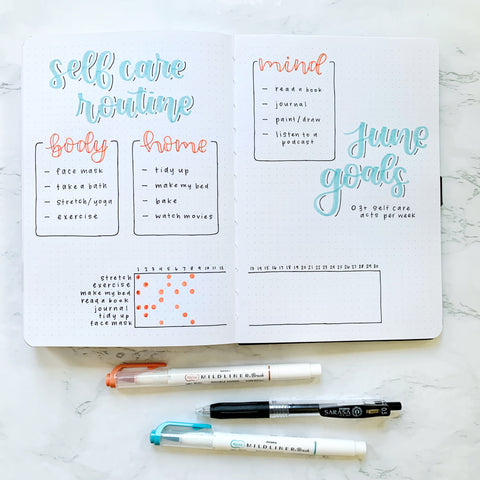 self care
routine
body
- face mask
- take a bath
- stretch/yoga
- exercise
home
- tidy up
- make my bed
- bake
- watch movies
mind
- read a book
- journal
- paint/draw
- listen to a
podcast
june
goals
0 3+ self care
acts per week
1 2 3 4 5 6 7 8 9 10 11 12
stretch
exercise
make my bed
read a book
journal
tidy up
face mask
13 14 15 16 17 18 19 20 21 22 23 24 25 26 27 28 29 30
ZEBRA
MILDLINER Brush
SARASA
0.5
ZEBRA
MILDLINER Brush